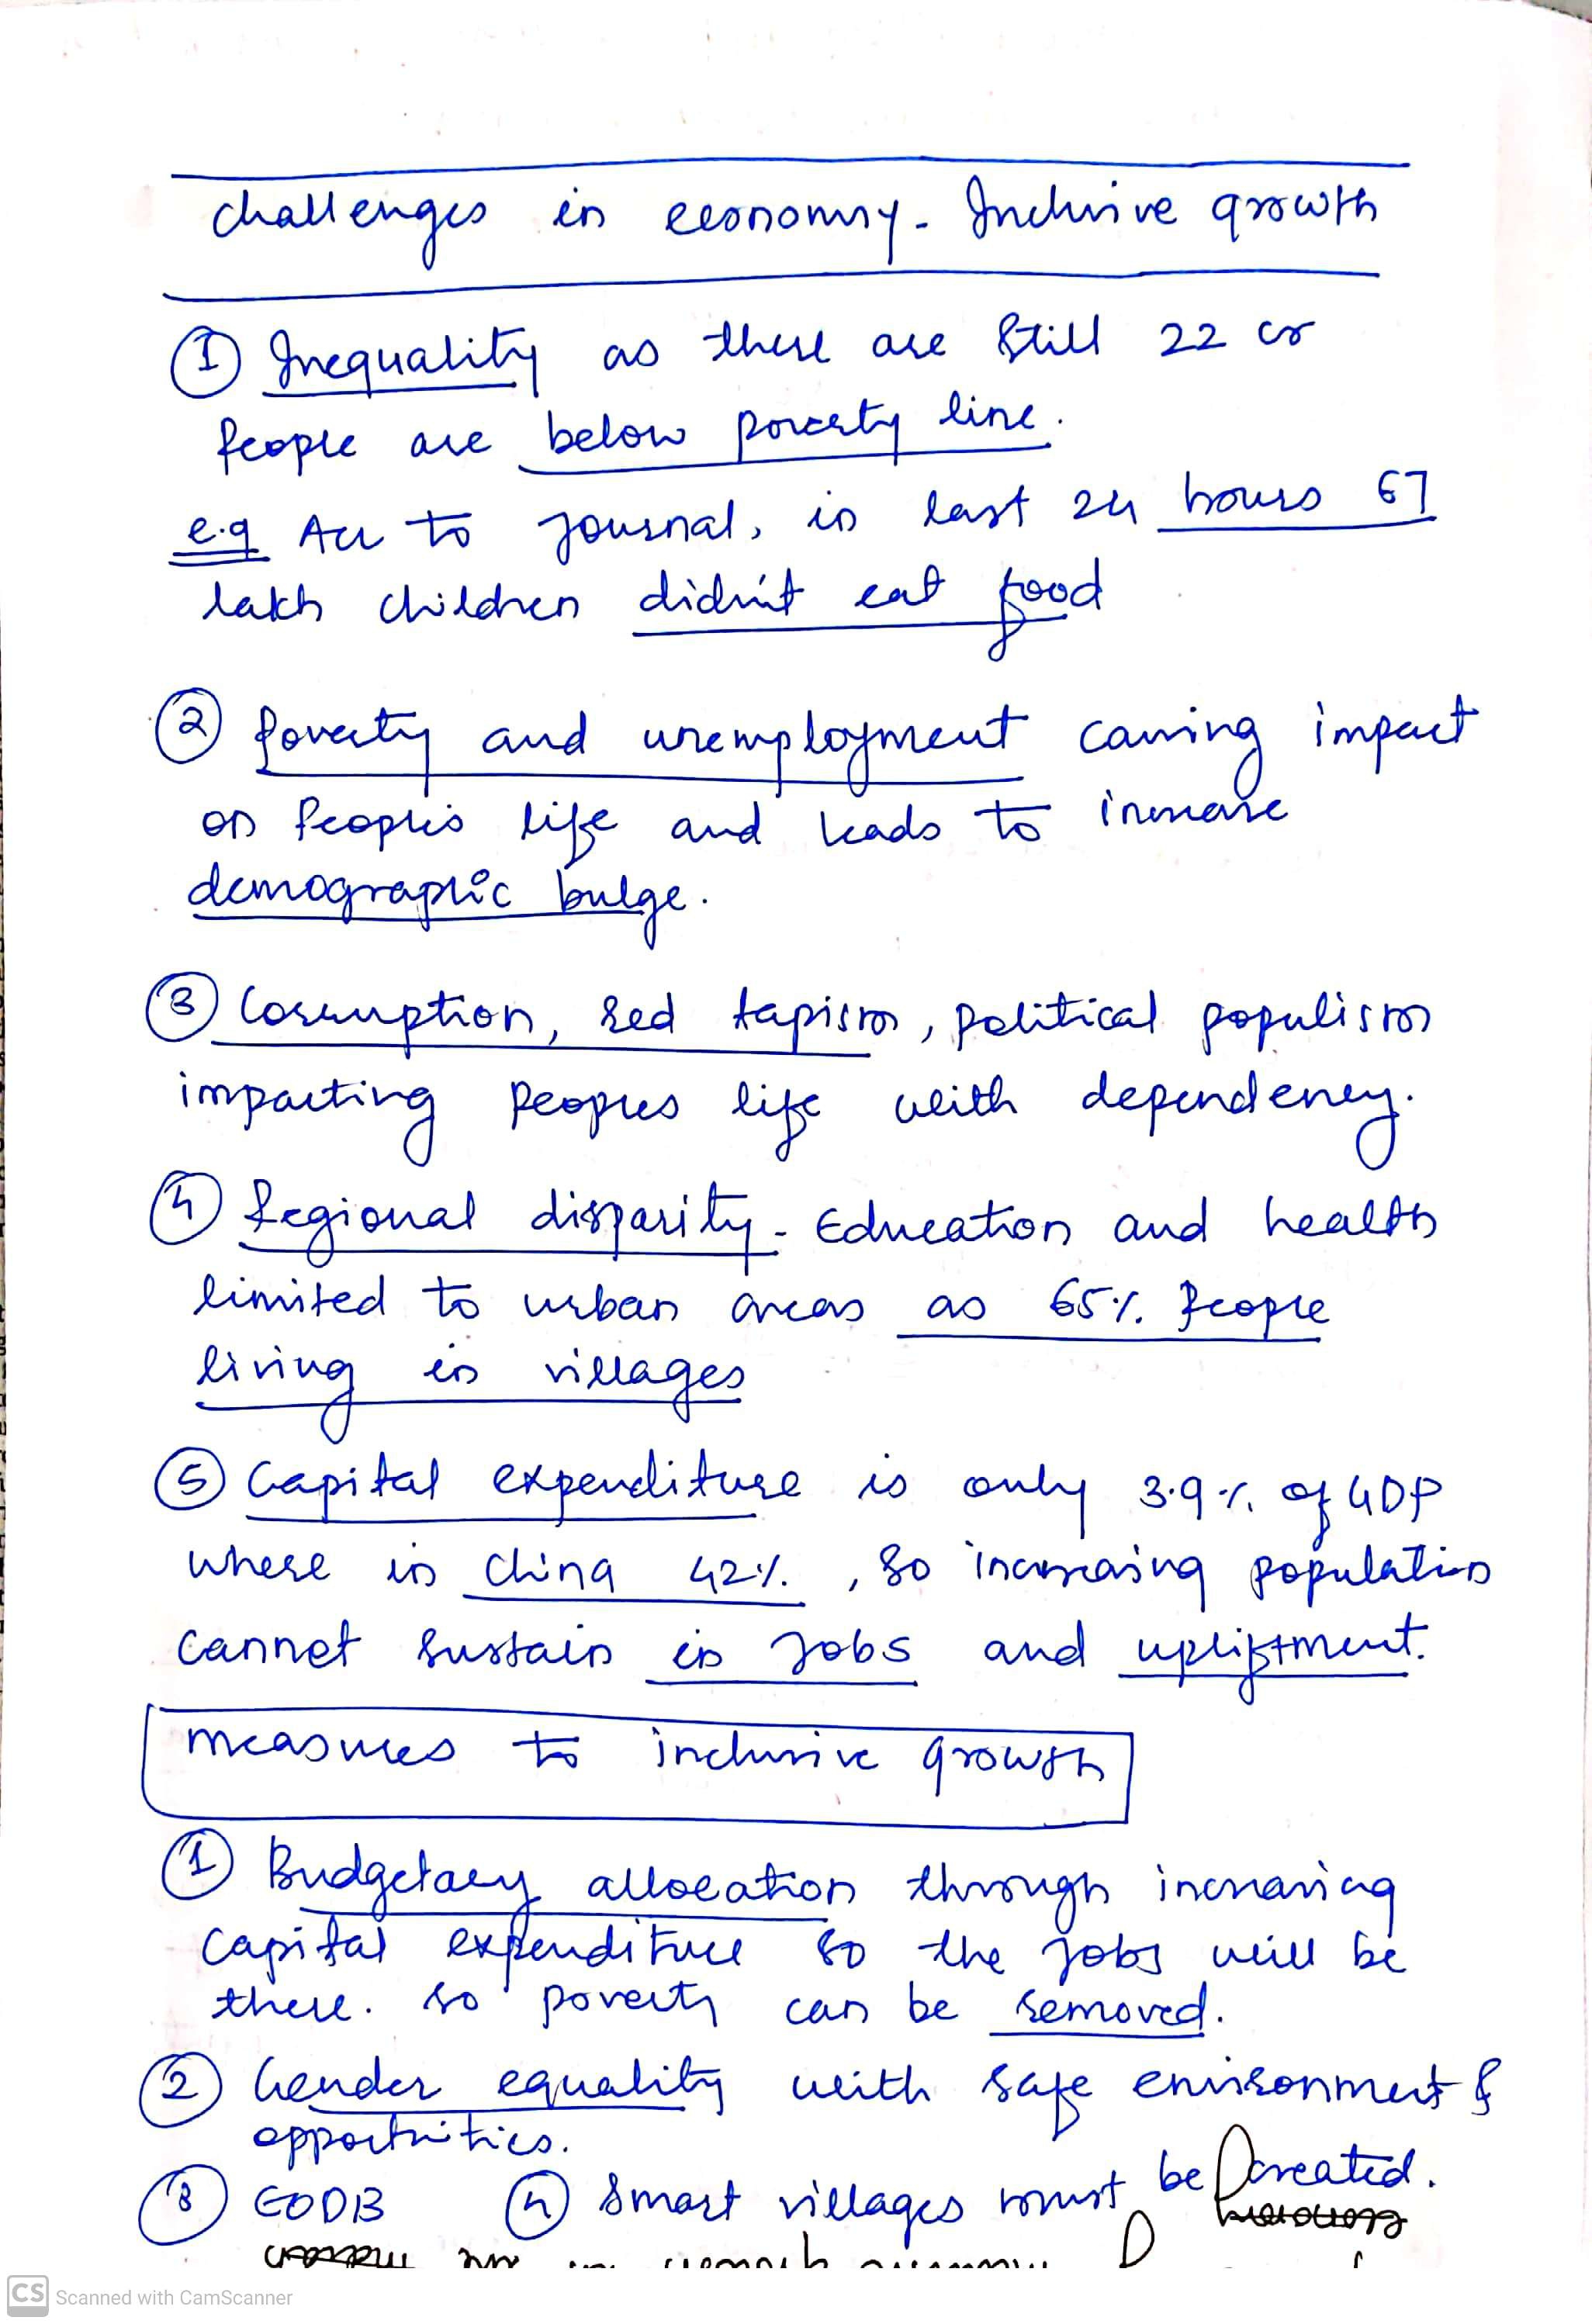 challenges in economy - Inclusive growth
① Inequality as there are still 22 cr
People are below poverty line.
e.g Acc to journal, in last 24 hours 67
lakh children didn't eat food
② Poverty and unemployment causing impact
on People's life and leads to increase
demographic bulge.
③ Corruption, red tapism, political populism
impacting peoples life with dependency.
④ Regional disparity - Education and health
limited to urban areas as 65% People
living in villages
⑤ Capital expenditure is only 3.9% of GDP
where in China 42%, so increasing population
cannot sustain in jobs and upliftment.
measures to inclusive growth
① Budgetary allocation through increasing
capital expenditure so the jobs will be
there. so poverty can be removed.
② Gender equality with safe environment &
opportunities.
③ EODB ④ Smart villages must be created.
CS Scanned with CamScanner